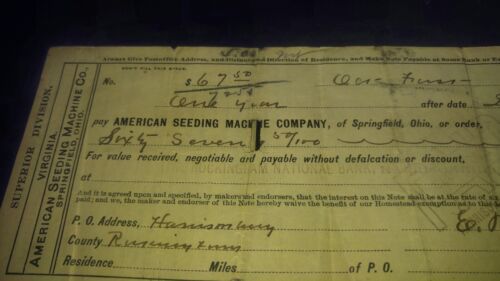 Always Give Postoffice Address, and Distance and Direction of Residence, and Make Note Payable at Some Bank or Ex
DON'T FILL THIS SPACE.
No. $ 67 50
One year after date
pay AMERICAN SEEDING MACHINE COMPANY, of Springfield, Ohio, or order,
Sixty Seven 50/100
For value received, negotiable and payable without defalcation or discount,
at ROCKINGHAM NATIONAL BANK,
And it is agreed upon and specified, by makers and endorsers, that the interest on this Note shall be at the rate of
paid; and we, the maker and endorser of this Note hereby waive the benefit of our Homestead exemption as to
P. O. Address, Harrisonburg
County
Residence Miles of P. O.
SUPERIOR DIVISION,
VIRGINIA.
AMERICAN SEEDING MACHINE CO.,
SPRINGFIELD, OHIO.